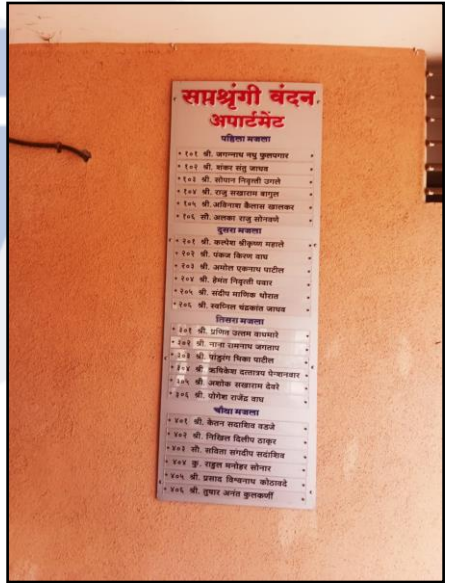 सप्तश्रृंगी वंदन
अपार्टमेंट
पहिला मजला
१०१ श्री. जगन्नाथ नथु फुलपगार
१०२ श्री. शंकर संतु जाधव
१०३ श्री. सोपान निवृत्ती उगले
१०४ श्री. राजु सखाराम बागुल
१०५ श्री. अविनाश कैलास खालकर
१०६ सौ. अलका राजु सोनवणे
दुसरा मजला
२०१ श्री. कल्पेश श्रीकृष्ण महाले
२०२ श्री. पंकज किरण वाघ
२०३ श्री. अमोल एकनाथ पाटील
२०४ श्री. हेमंत निवृत्ती पवार
२०५ श्री. संदीप माणिक थोरात
२०६ श्री. स्वप्निल चंद्रकांत जाधव
तिसरा मजला
३०१ श्री. प्रणिव उत्तम वाघमारे
३०२ श्री. नाना रामनाथ जगताप
३०३ श्री. पांडुरंग भिका पाटील
३०४ श्री. ऋषिकेश दत्तात्रय पेन्शनवार
३०५ श्री. अशोक सखाराम देवरे
३०६ श्री. योगेश राजेंद्र वाघ
चौथा मजला
४०१ श्री. केतन सदाशिव वडजे
४०२ श्री. निखिल दिलीप ठाकुर
४०३ सौ. सविता संगदीप सदांशिव
४०४ कु. राहुल मनोहर सोनार
४०५ श्री. प्रसाद विश्वनाथ कोठावदे
४०६ श्री. तुषार अनंत कुलकर्णी